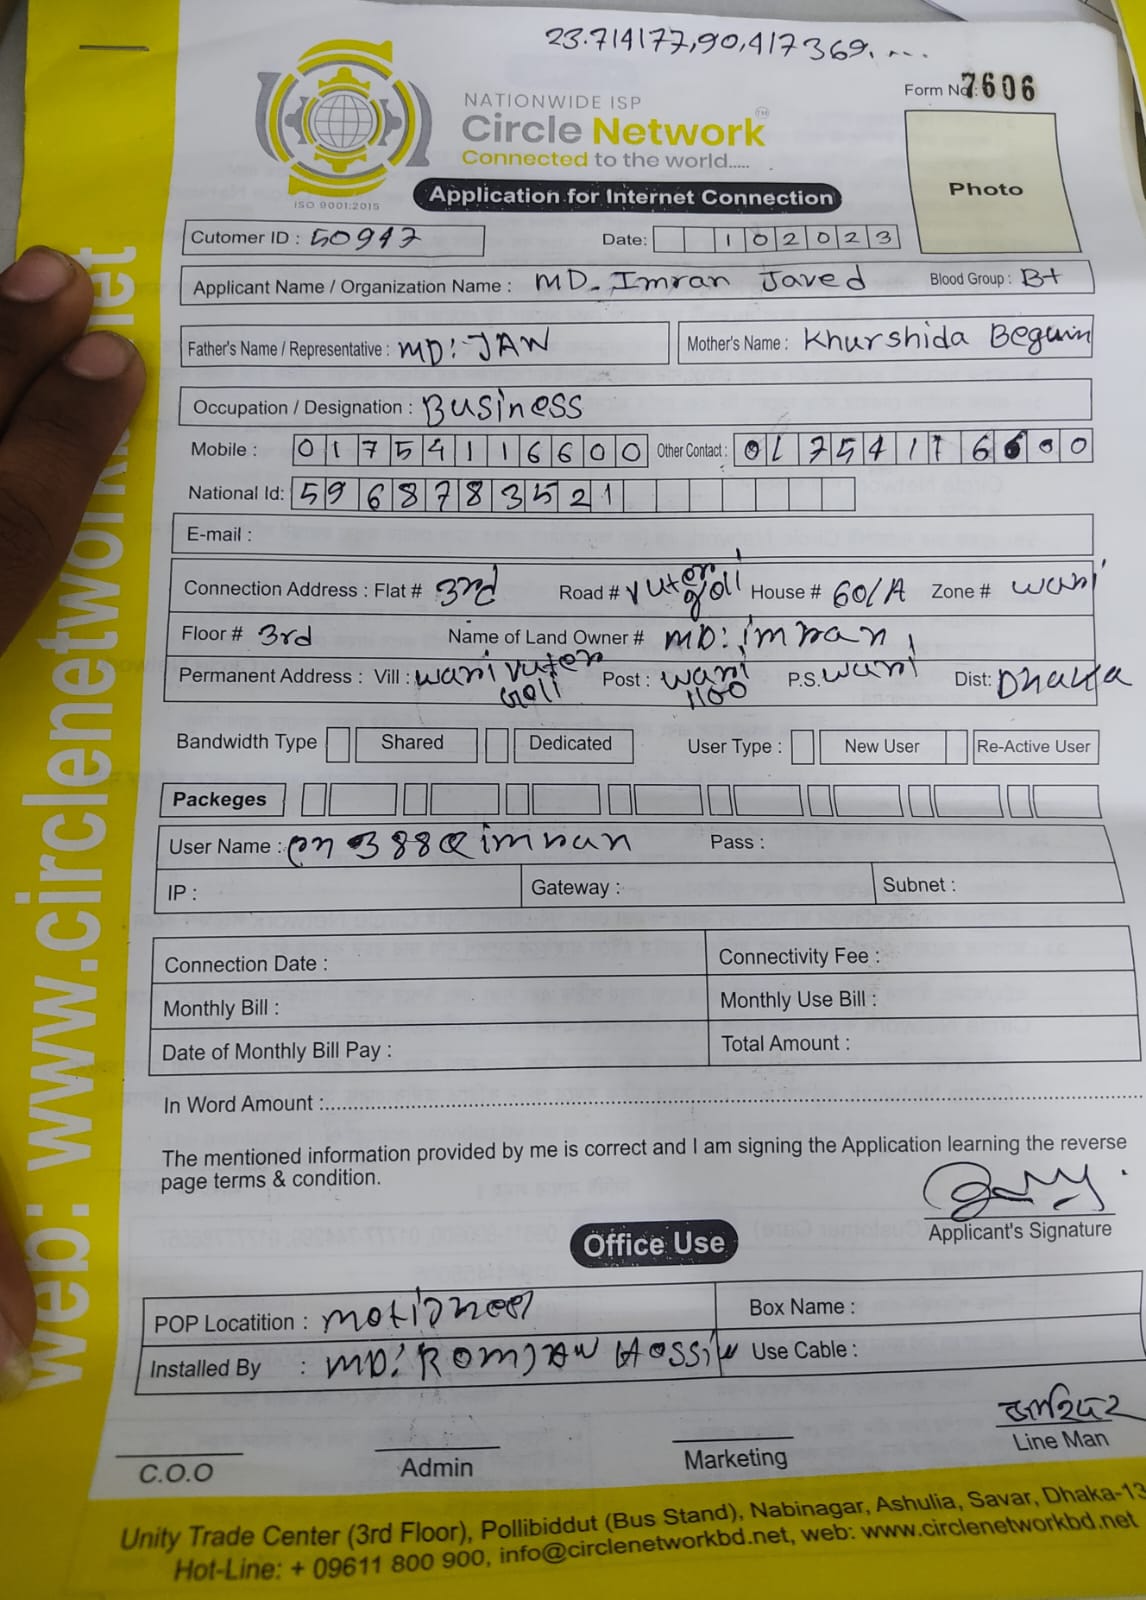 23.714177,90,417369....
Form No: 7606
NATIONWIDE ISP
Circle Network TM
Connected to the world.....
ISO 9001:2015
Application for Internet Connection
Photo
Cutomer ID : 50947 Date: 1 0 2 0 2 3
Applicant Name / Organization Name : MD. Imran Javed Blood Group : B+
Father's Name / Representative : MD: JAN Mother's Name : Khurshida Begum
Occupation / Designation : Business
Mobile : 0 1 7 5 4 1 1 6 6 0 0 Other Contact : 0 1 7 5 4 1 1 6 6 0 0
National Id: 5 9 6 8 7 8 3 5 2 1
E-mail :
Connection Address : Flat # 3rd Road # Vuter goli House # 60/A Zone # wari
Floor # 3rd Name of Land Owner # MD: imran
Permanent Address : Vill : wari vuter goli Post : wari 1100 P.S. wari Dist: Dhaka
Bandwidth Type Shared Dedicated User Type : New User Re-Active User
Packeges
User Name : Pass :
IP : Gateway : Subnet :
Connection Date : Connectivity Fee :
Monthly Bill : Monthly Use Bill :
Date of Monthly Bill Pay : Total Amount :
In Word Amount :
The mentioned information provided by me is correct and I am signing the Application learning the reverse
page terms & condition.
Applicant's Signature
Office Use
POP Locatition : motijheel Box Name :
Installed By : MD: ROMJAN Use Cable :
C.O.O Admin Marketing Line Man
Unity Trade Center (3rd Floor), Pollibiddut (Bus Stand), Nabinagar, Ashulia, Savar, Dhaka-13
Hot-Line: + 09611 800 900, info@circlenetworkbd.net, web: www.circlenetworkbd.net
web: www.circlenetworkbd.net